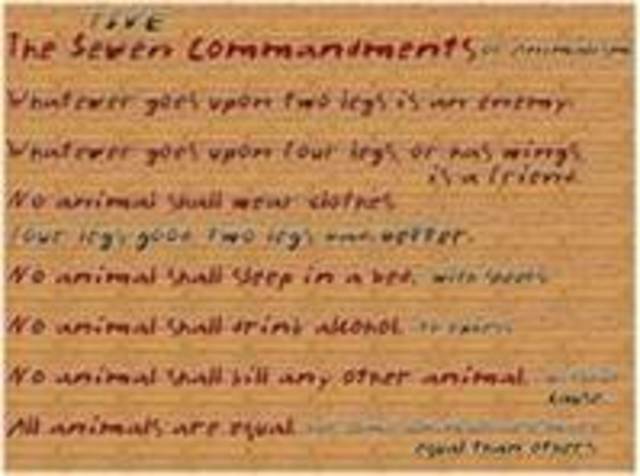 FIVE
The Seven Commandments of Animalism
Whatever goes upon two legs is an enemy.
Whatever goes upon four legs, or has wings
is a friend.
No animal shall wear clothes
Four legs good two legs better.
No animal shall sleep in a bed, with sheets
No animal shall drink alcohol to excess
No animal shall kill any other animal without
cause
All animals are equal
equal than others